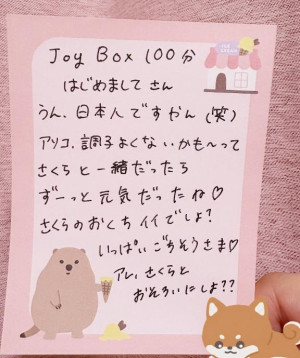 Joy Box 100分
はじめまして さん
うん、日本人ですやん (笑)
アソコ、調子よくないかも〜って
さくらと一緒だったら
ずーっと元気だったね♡
さくらのおくちイイでしょ?
いっぱいごちそうさま♡
アレ、さくらと
おそろいにしよ??